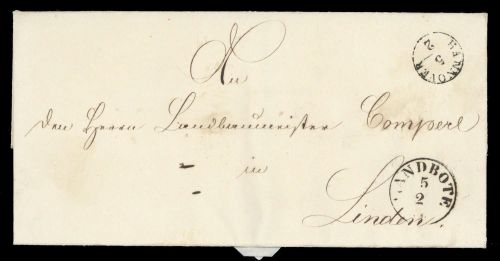 An
HANNOVER
5
2
den Herrn Landbaumeister Comperl
in
LANDBOTE
5
2
Linden.